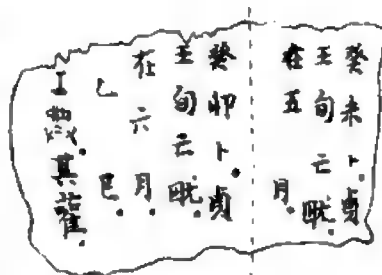 癸未卜.貞
王旬亡畎.
在五月.
癸卯卜.貞
王旬亡畎.
在六月.
乙巳.
工其雚.